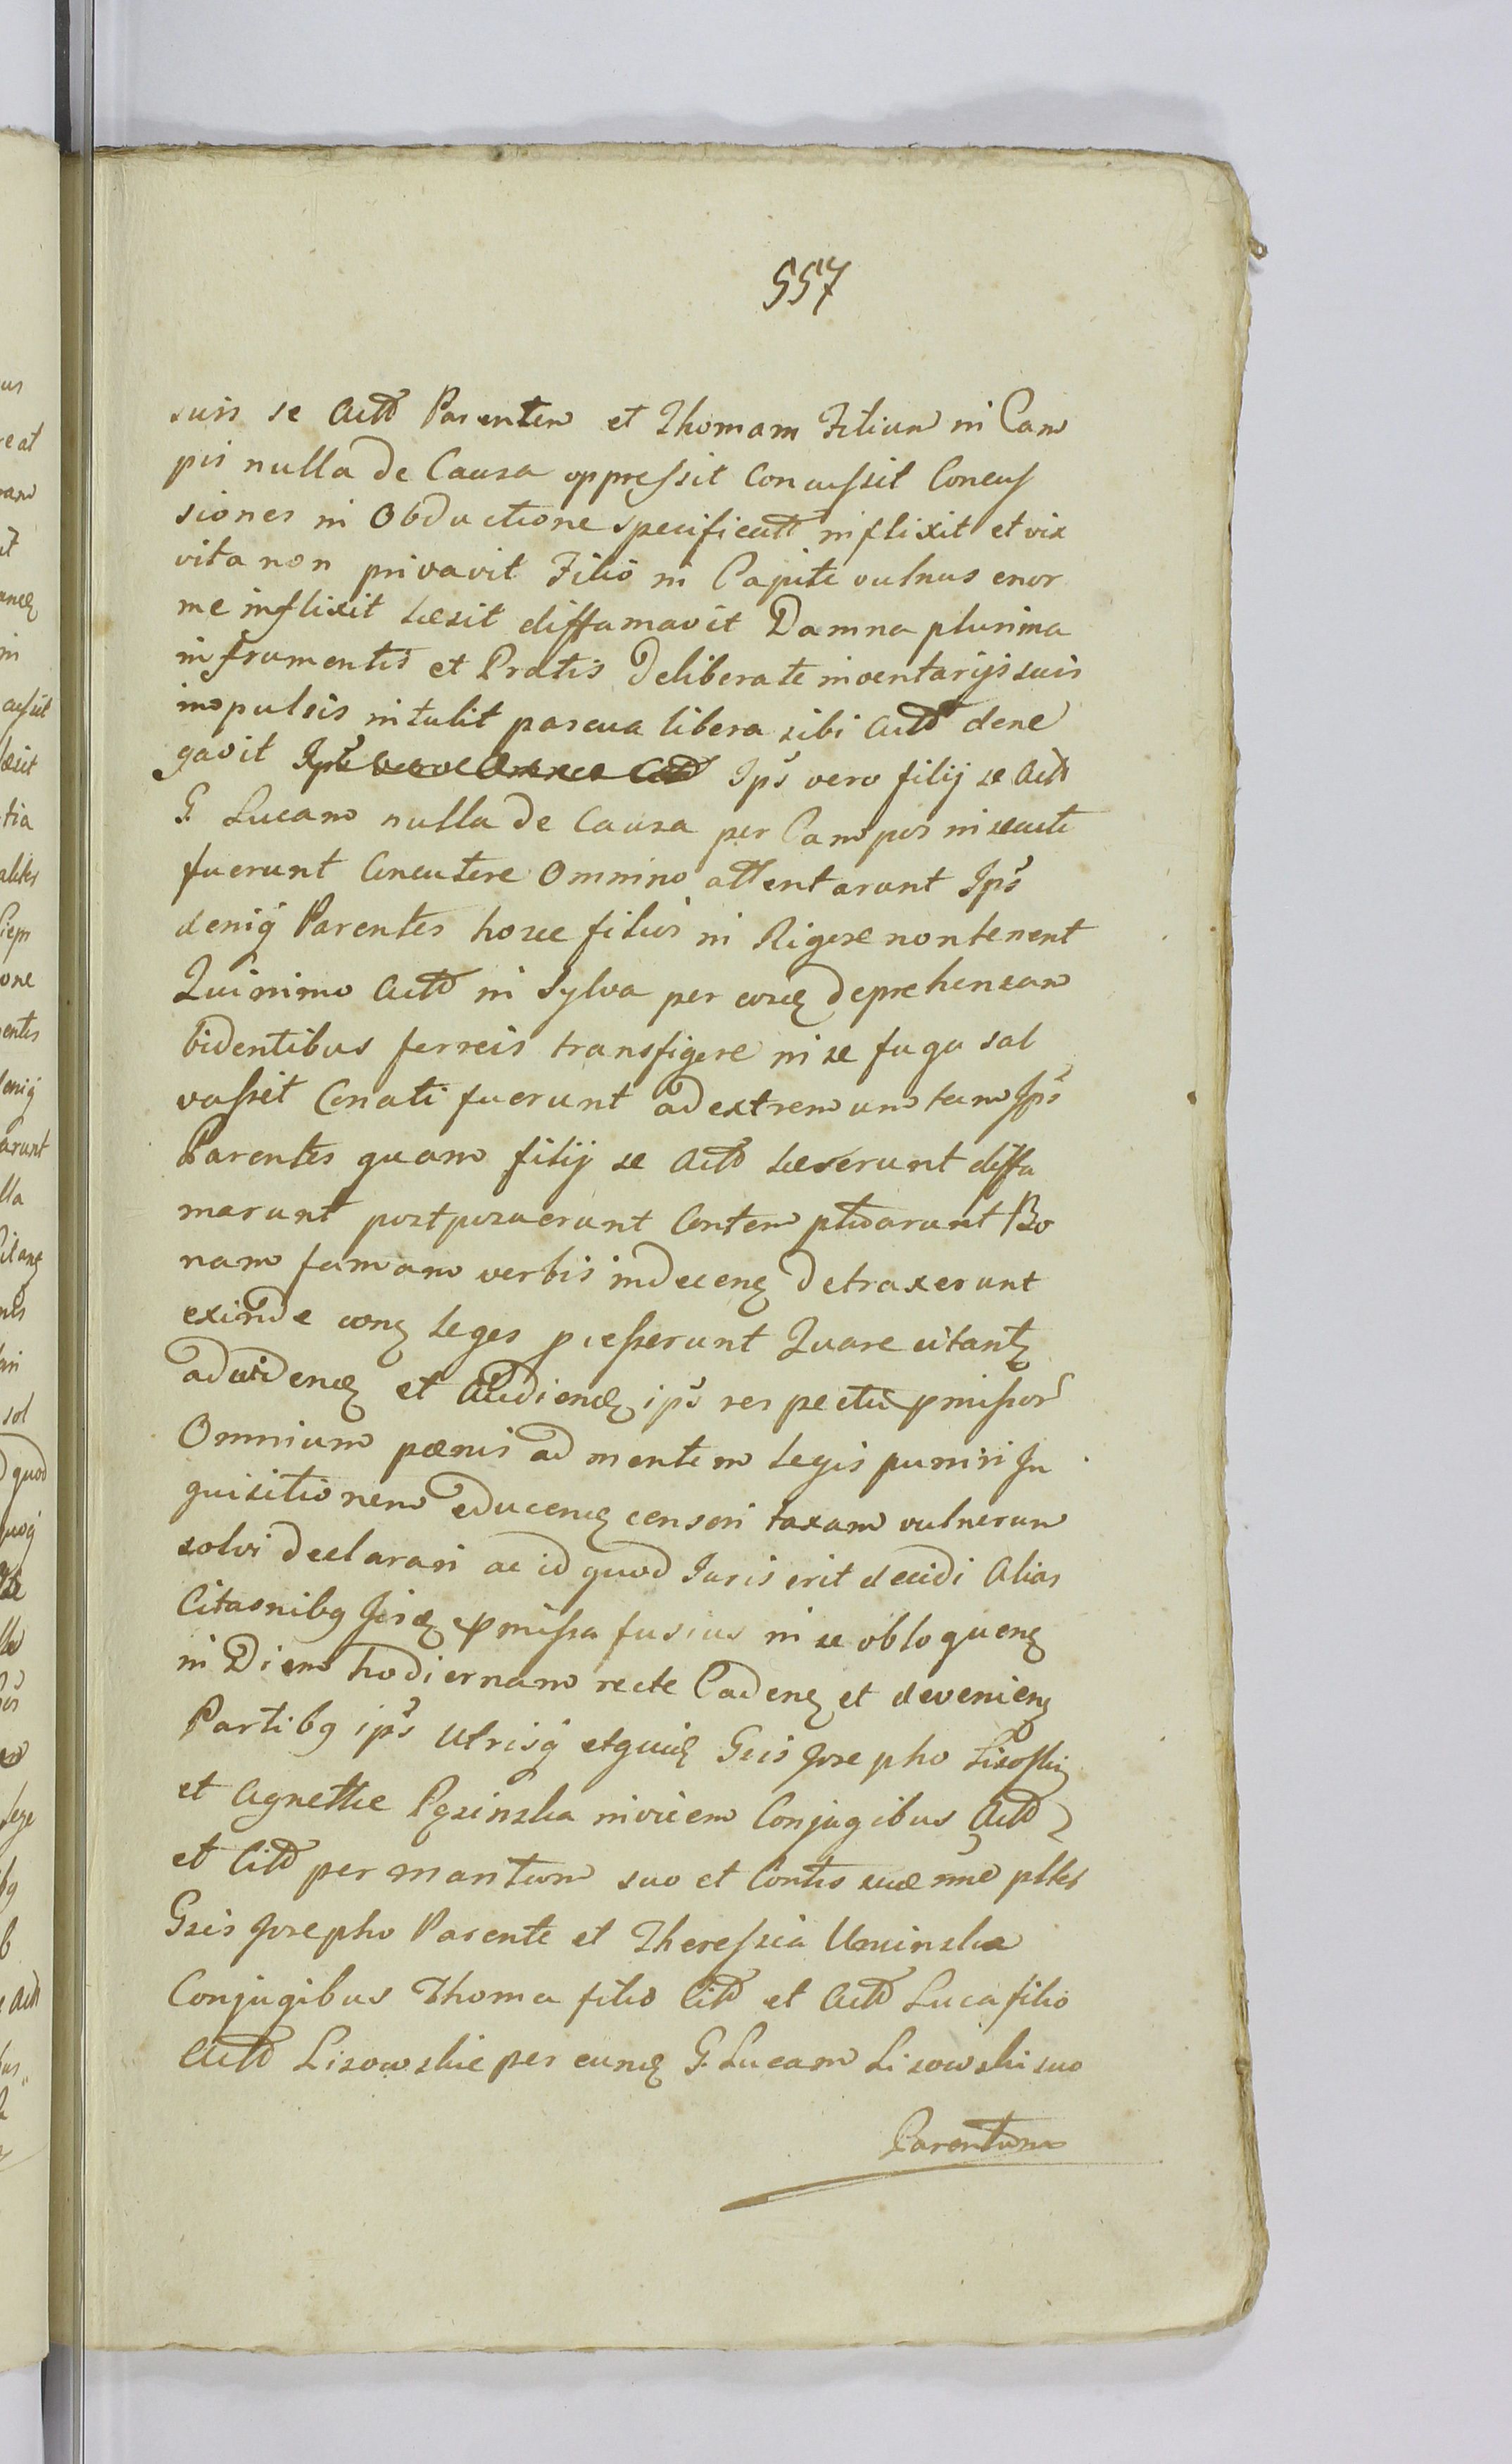 557
suis se Actt Parentem et Thomam Filium in Cam
pis nulla de Causa oppressit Concussit Concus
siones in Obductione specificatt inflixit et vix
vita non privavit Filio in Capite vulnus enor
me inflixit læsit diffamavit Damna plurima
in frumentis et Pratis deliberate inventarijs suis
impulsis intulit pascua libera sibi Actt dene
gavit Ips vero filij se Actt
G. Lucam nulla de Causa per Campos insecuti
fuerunt Concutere Omnino attentarunt Ips
deniq Parentes hosce filios in Rigore non tenent
Quinimo Actt in Sylva per eosd deprehensam
bidentibus ferreis transfigere ni se fuga sal
vasset Conati fuerunt ad extremum tam Ips
Parentes quam filij se Actt læserunt diffa
marunt postposuerunt Contemptuarunt Bo
nam famam verbis indecen detraxerunt
exinde leges Quare citant
ad viden et Audien ips respectu pmissor
Omnium pænis ad mentem legis puniri In
quisitionem educend censeri taxam vulnerum
solvi declarari ac id quod Iuris erit decidi Alias
Citaonibq pmissa fusius in se obloquen
in Diem hodiernam recte Caden et devenien
Partibq ips Utrisq Gsis Josepho
et Agnethe invicem Conjugibus Actt
et Citt per maritum suo et Contis suæ nne pltes
Gsis Josepho Parente et Theressia Uminska
Conjugibus Thoma filio Citt et Actt Luca filio
Actt Lisowskie per eund G. Lucam Lisowski suo
Parentum